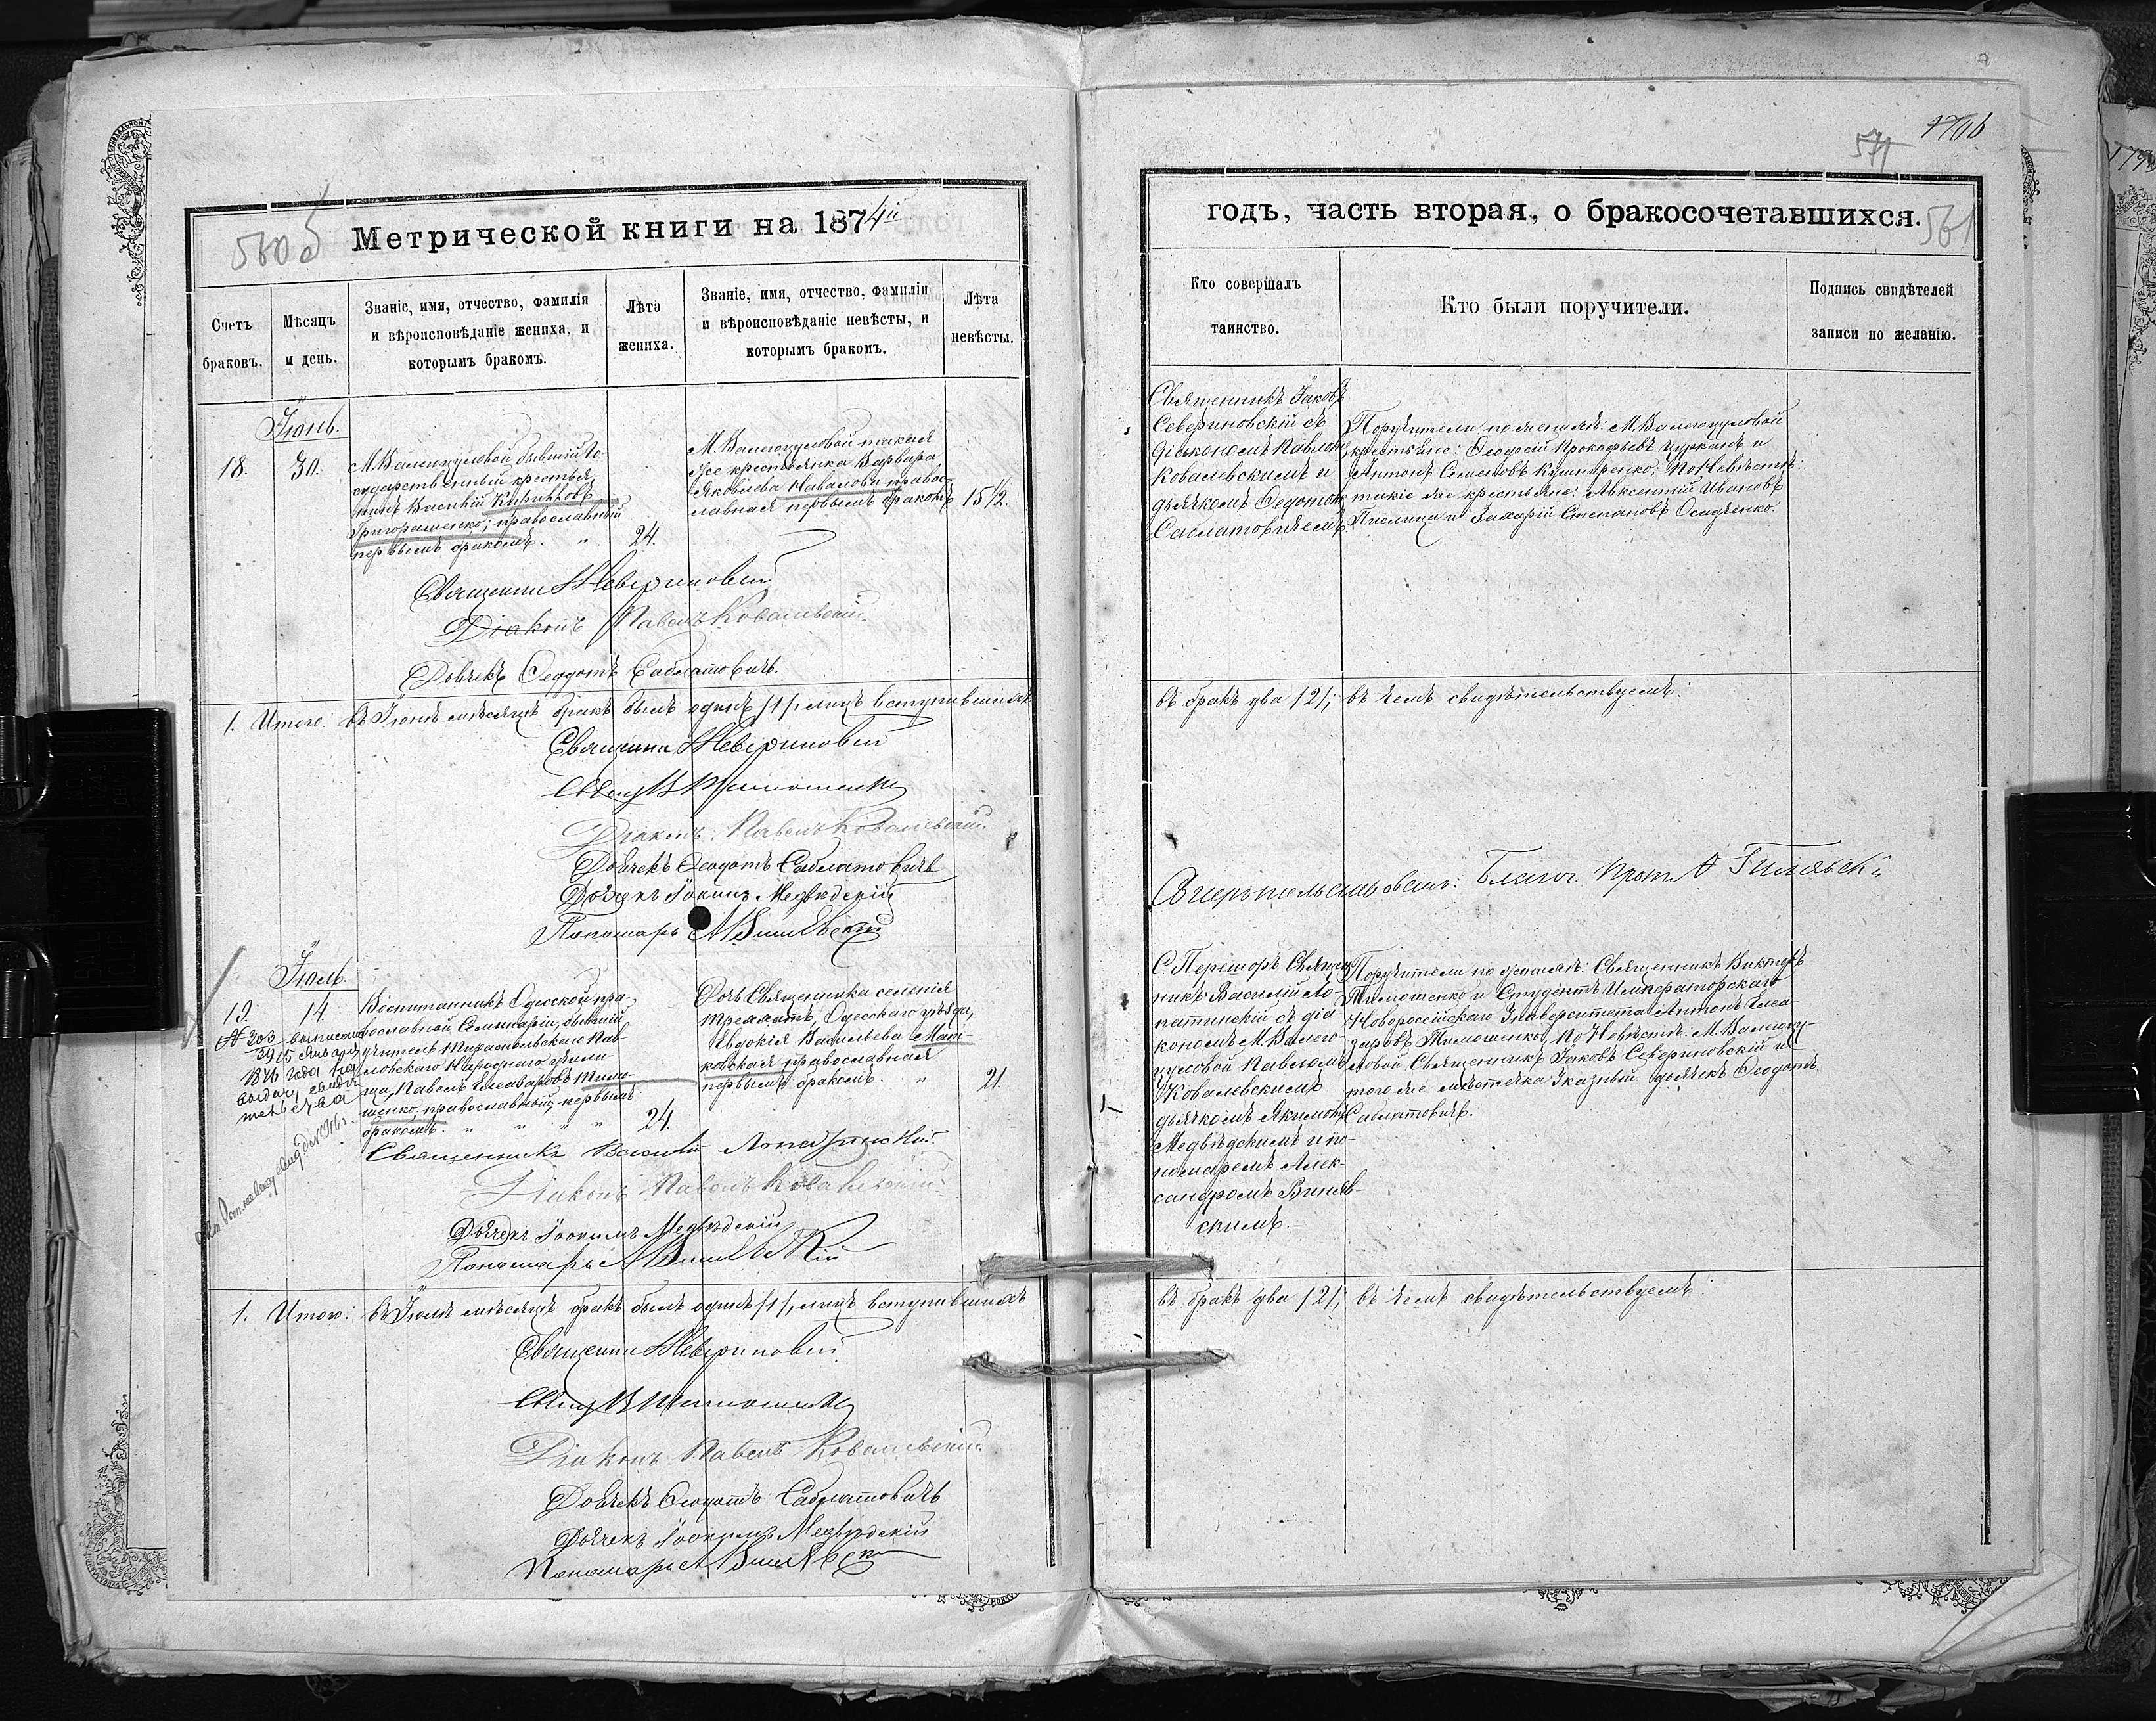 560 б
Метрической книги на 1874й
Счетъ браковъ.
Мѣсяцъ и день.
Званіе, имя, отчество, фамилія
и вѣроисповѣданіе жениха, и
которымъ бракомъ.
Лѣта
жениха.
Званіе, имя, отчество, фамилія
и вѣроисповѣданіе невѣсты, и
которымъ бракомъ.
Лѣта
невѣсты.
Іюнь.
18.
30.
М. Валегоцуловой бывшій Го-
сударственный крестья-
нинъ Василій Кирилловъ
Григорашенко, православный
первымъ бракомъ.
24.
М. Валегоцуловой такая
же крестьянка Варвара
Яковлева правос-
лавная первымъ бракомъ
15½.
Священникъ Севериновскій
Діаконъ Павелъ Ковалевскій
Дьячекъ Ѳеодотъ Саблатовичъ.
1. Итого: въ Іюнѣ мѣсяцѣ бракъ былъ одинъ /1/, лицъ вступившихъ
Священникъ Севериновскій
Свящ. В. Тимошенко
Діаконъ Павелъ Ковалевскій
Дьячекъ Ѳеодотъ Саблатовичъ
Дьячекъ Іоакимъ Медвѣдскій
Пономарь А
Іюль.
19.
14.
Воспитанникъ Одесской пра-
вославной Семинаріи, бывшій
учитель Тираспольскаго Пав-
ловскаго Народнаго учили-
ща, Павелъ Елеазаровъ Тимо-
шенко, православный, первымъ
бракомъ.
24.
Дочь Священника селенія
Одесскаго уѣзда,
Евдокія Васильева Мат-
ковская православная
первымъ бракомъ.
21.
№ 203
29/15 Января
1876 года на
выдачу свидѣ-
тельства
Священникъ Василій Лопатинскій
Діаконъ Павелъ Ковалевскій
Дьячекъ Іоакимъ Медвѣдскій
Пономарь А
1. Итого: въ Іюлѣ мѣсяцѣ бракъ былъ одинъ /1/, лицъ вступившихъ
Священникъ Севериновскій
Свящ. В. Тимошенко
Діаконъ Павелъ Ковалевскій
Дьячекъ Ѳеодотъ Саблатовичъ
Дьячекъ Іоакимъ Медвѣдскій
Пономарь А
571
годъ, часть вторая, о бракосочетавшихся.
561
Кто совершалъ
таинство.
Кто были поручители.
Подпись свидѣтелей
записи по желанію.
Священникъ Іаковъ
Севериновскій съ
діакономъ Павломъ
Ковалевскимъ и
дьячкомъ Ѳеодотомъ
Саблатовичемъ.
Поручители по женихѣ: М. Валегоцуловой
крестьяне: Ѳеодосій Прокофьевъ Цурканъ и
Антонъ Семеновъ Кушниренко; по Невѣстѣ:
такіе же крестьяне: Авксентій Ивановъ
и Захарій Степановъ Осадченко.
въ бракъ два /2/, въ чемъ свидѣтельствуемъ:
Благоч. Прот. А.
С. Перешоръ Священ-
никъ Василій Ло-
патинскій съ діа-
кономъ М. Валего-
цуловой Павломъ
Ковалевскимъ
дьячкомъ Якимомъ
Медвѣдскимъ и по-
номаремъ Алек-
сандромъ
скимъ.
Поручители по женихѣ: Священникъ Викторъ
Тимошенко и Студентъ Императорскаго
Новороссійскаго Университета Антонъ Елеа-
заровъ Тимошенко, По Невѣстѣ: М. Валегоцу-
ловой Священникъ Іаковъ Севериновскій и
того же мѣстечка Указный дьячекъ Ѳеодотъ
Саблатовичъ.
въ бракъ два /2/, въ чемъ свидѣтельствуемъ: